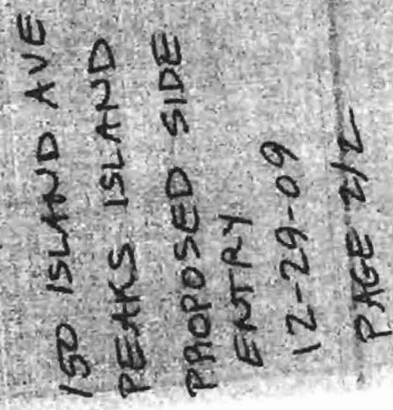 150 ISLAND AVE
PEAKS ISLAND
PROPOSED SIDE
ENTRY
12-29-09
PAGE 2/2